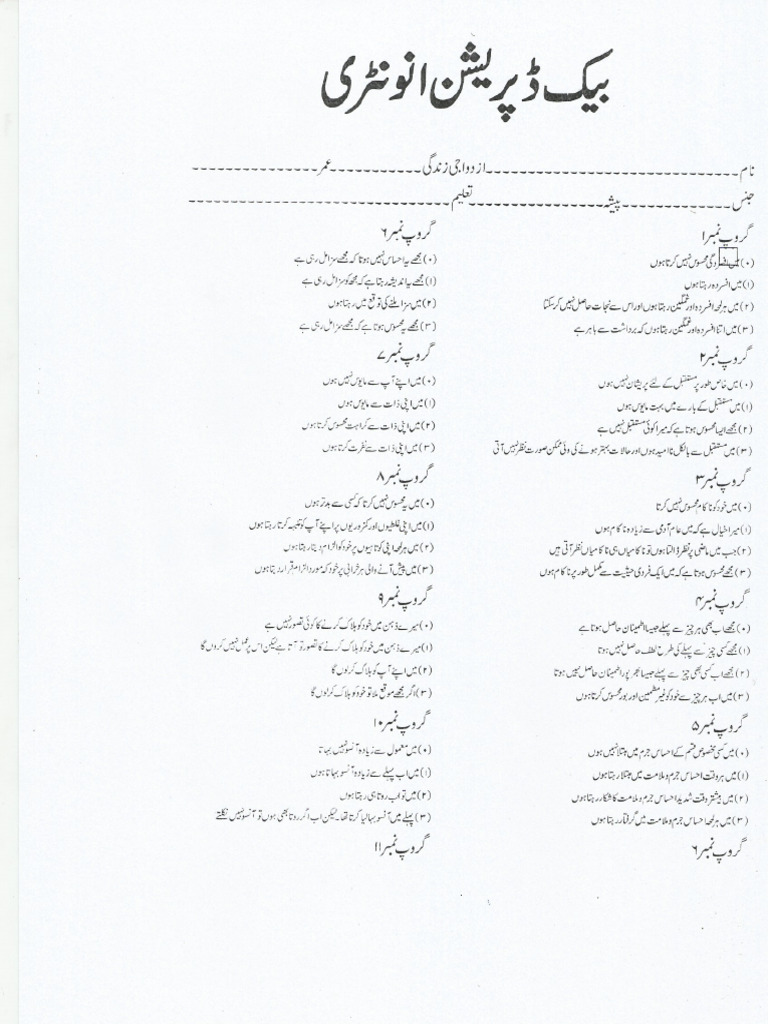 بیک ڈپریشن انونٹری
نام ---------------------------- ازدواجی زندگی ----------- عمر ---------------
جنس ------------- پیشہ ---------------- تعلیم -------------------------------
گروپ نمبر ۱
(۰) دگی محسوس نہیں کرتا ہوں
(۱) میں افسردہ رہتا ہوں
(۲) میں ہر لمحہ افسردہ اور غمگین رہتا ہوں اور اس سے نجات حاصل نہیں کر سکتا
(۳) میں اتنا افسردہ اور غمگین رہتا ہوں کہ برداشت سے باہر ہے
گروپ نمبر ۲
(۰) میں خاص طور پر مستقبل کے لئے پریشان نہیں ہوں
(۱) میں مستقبل کے بارے میں بہت مایوس ہوں
(۲) مجھے ایسا محسوس ہوتا ہے کہ میرا کوئی مستقبل نہیں ہے
(۳) میں مستقبل سے بالکل نا امید ہوں اور حالات بہتر ہونے کی وئی ممکن صورت نظر نہیں آتی
گروپ نمبر ۳
(۰) میں خود کو ناکام محسوس نہیں کرتا
(۱) میرا خیال ہے کہ میں عام آدمی سے زیادہ ناکام ہوں
(۲) جب میں ماضی پر نظر ڈالتا ہوں تو ناکامیاں ہی ناکامیاں نظر آتی ہیں
(۳) مجھے محسوس ہوتا ہے کہ میں ایک فرد کی حیثیت سے مکمل طور پر ناکام ہوں
گروپ نمبر ۴
(۰) مجھے اب بھی ہر چیز سے پہلے جیسا اطمینان حاصل ہوتا ہے
(۱) مجھے کسی چیز سے پہلے کی طرح لطف حاصل نہیں ہوتا
(۲) مجھے اب کسی بھی چیز سے پہلے جیسا بھرپور اطمینان حاصل نہیں ہوتا
(۳) میں اب ہر چیز سے خود کو غیر مطمئین اور بور محسوس کرتا ہوں
گروپ نمبر ۵
(۰) میں کسی مخصوص قسم کے احساس جرم میں مبتلا نہیں ہوں
(۱) میں ہر وقت احساس جرم و ملامت میں مبتلا رہتا ہوں
(۲) میں بیشتر وقت شدید احساس جرم و ملامت کا شکار رہتا ہوں
(۳) میں ہر لمحہ احساس جرم و ملامت میں گرفتار رہتا ہوں
گروپ نمبر ۶
گروپ نمبر ۶
(۰) مجھے یہ احساس نہیں ہوتا کہ مجھے سزا مل رہی ہے
(۱) مجھے یہ اندیشہ رہتا ہے کہ مجھ کو سزا مل رہی ہے
(۲) میں سزا ملنے کی توقع میں رہتا ہوں
(۳) مجھے یہ محسوس ہوتا ہے کہ مجھے سزا مل رہی ہے
گروپ نمبر ۷
(۰) میں اپنے آپ سے مایوس نہیں ہوں
(۱) میں اپنی ذات سے مایوس ہوں
(۲) میں اپنی ذات سے کراہت محسوس کرتا ہوں
(۳) میں اپنی ذات سے نفرت کرتا ہوں
گروپ نمبر ۸
(۰) میں یہ محسوس نہیں کرتا کہ کسی سے بدتر ہوں
(۱) میں اپنی غلطیوں اور کمزوریوں پر اپنے آپ کو تنبیہ کرتا رہتا ہوں
(۲) میں ہر لمحہ اپنی کوتاہیوں پر خود کو الزام دیتا رہتا ہوں
(۳) میں پیش آنے والی ہر خرابی پر خود کہ مورد الزام قرار دیتا ہوں
گروپ نمبر ۹
(۰) میرے ذہن میں خود کو ہلاک کرنے کا کوئی تصور نہیں ہے
(۱) میرے ذہن میں خود کو ہلاک کرنے کا تصور تو آتا ہے لیکن اس پر عمل نہیں کروں گا
(۲) میں اپنے آپ کو ہلاک کر لوں گا
(۳) اگر مجھے موقع ملا تو خود کو ہلاک کر لوں گا
گروپ نمبر ۱۰
(۰) میں معمول سے زیادہ آنسو نہیں بہاتا
(۱) میں اب پہلے سے زیادہ آنسو بہاتا ہوں
(۲) میں تو اب روتا ہی رہتا ہوں
(۳) پہلے میں آنسو بہا لیا کرتا تھا۔ لیکن اب اگر رونا بھی ہوں تو آنسو نہیں نکلتے
گروپ نمبر ۱۱